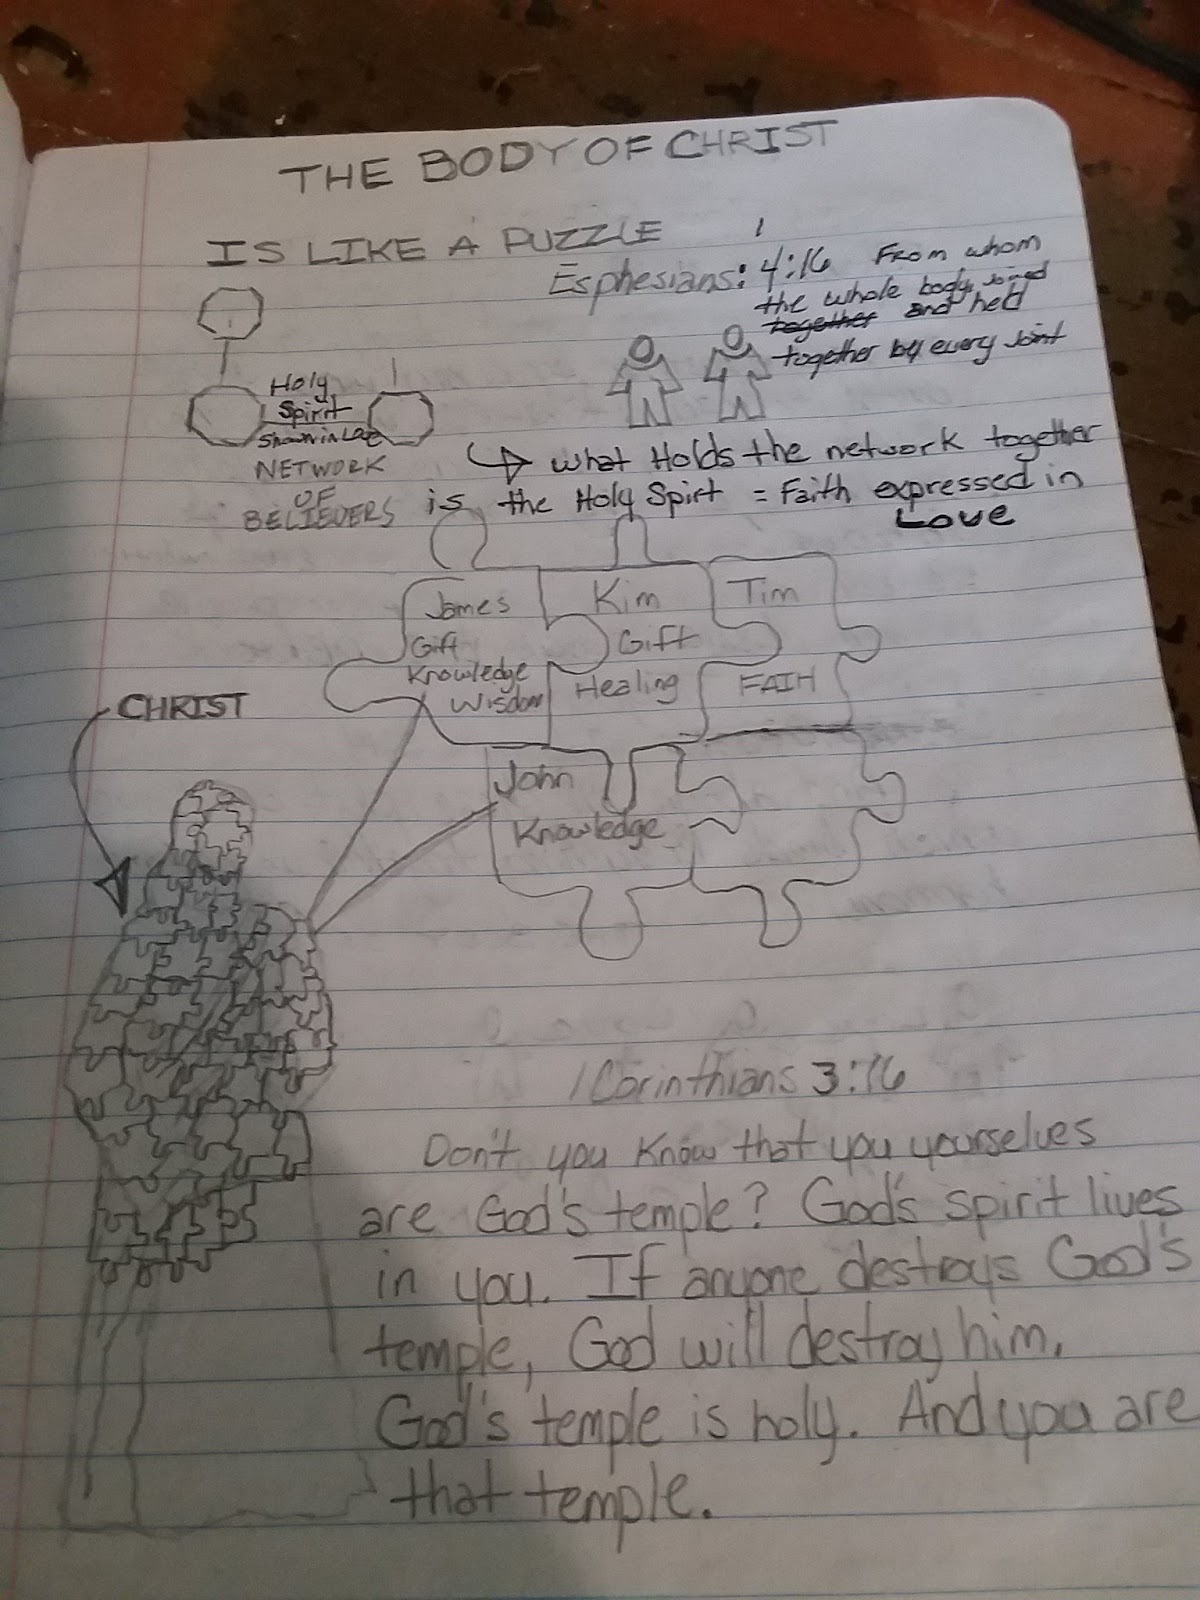 THE BODY OF CHRIST
IS LIKE A PUZZLE
Esphesians: 4:16 From whom
the whole body, joined
together and held
together by every joint
Holy
Spirit
Shown in Love
NETWORK
OF
BELIEVERS
what Holds the network together
is the Holy Spirt = Faith expressed in
Love
James
Gift
Knowledge
Wisdom
Kim
Gift
Healing
Tim
FAIH
CHRIST
John
Knowledge
1 Corinthians 3:16
Don't you know that you yourselves
are God's temple? God's spirit lives
in you. If anyone destroys God's
temple, God will destroy him.
God's temple is holy. And you are
that temple.